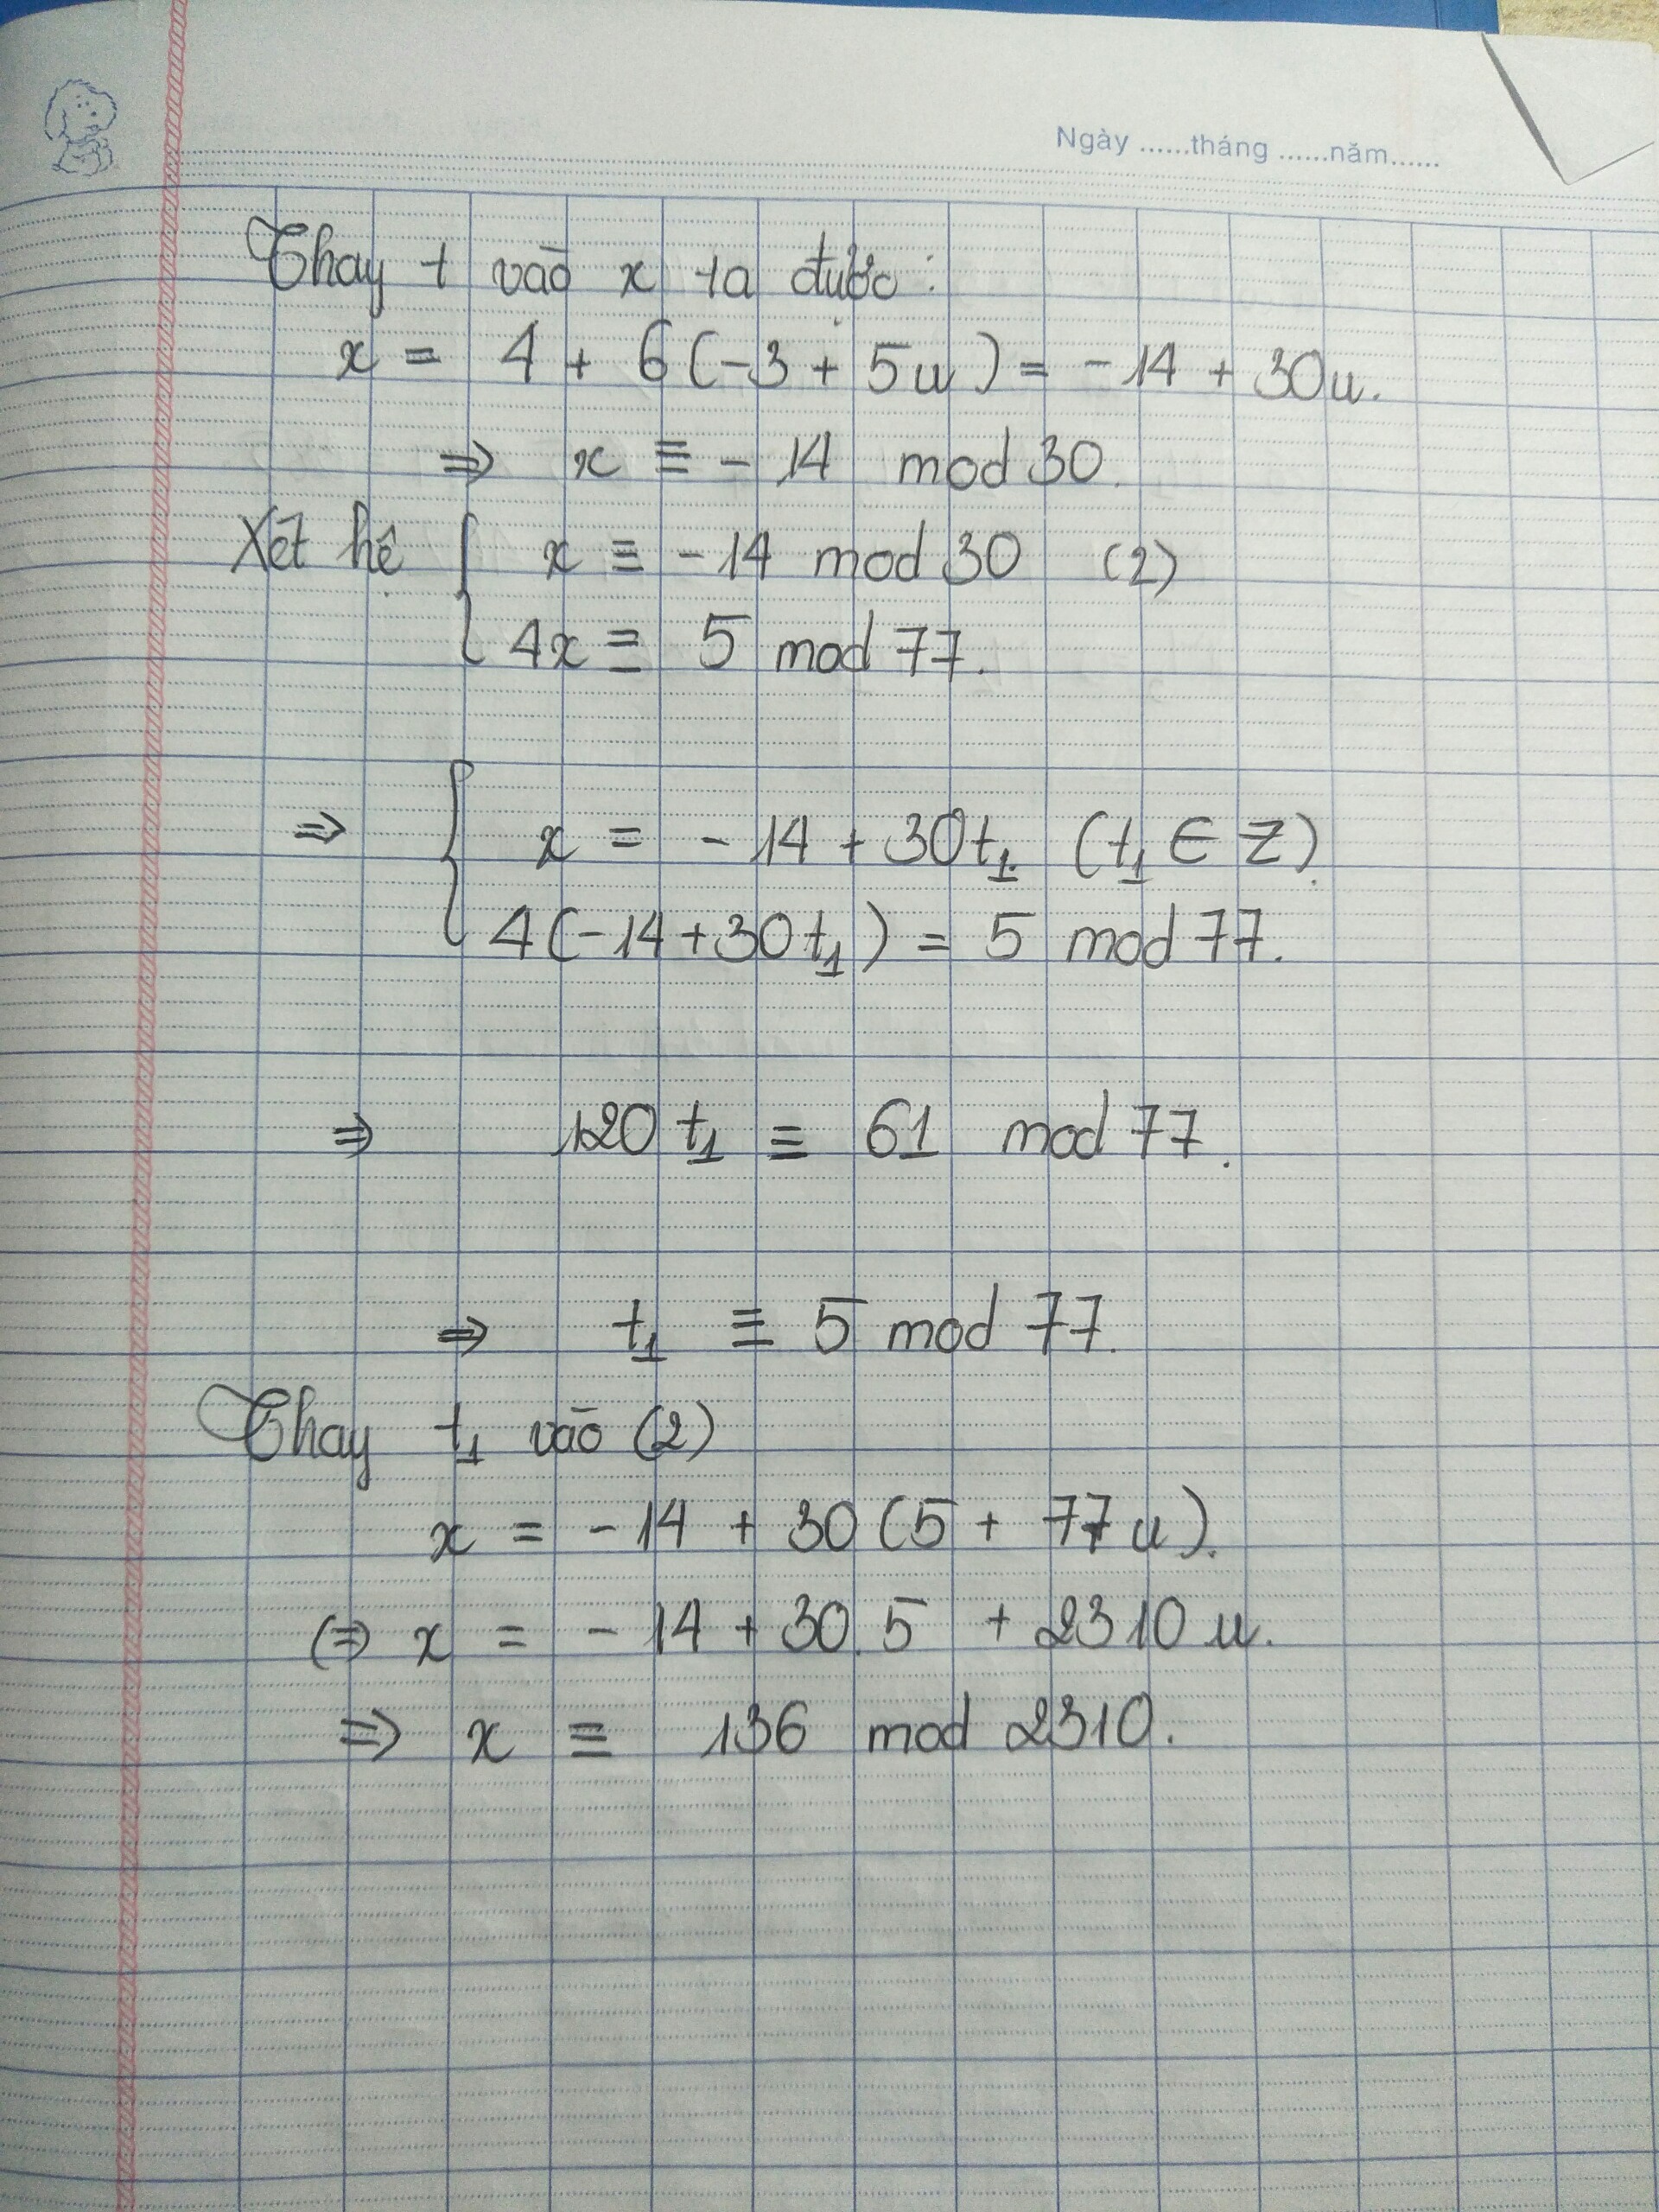 Ngày ......tháng ......năm......
Thay t vào x ta được:
x = 4 + 6(-3 + 5u) = -14 + 30u.
⇒ x ≡ -14 mod 30.
Xét hệ { x ≡ -14 mod 30 (2)
4x ≡ 5 mod 77.
⇒ { x = -14 + 30t₁. (t₁ ∈ Z).
4(-14+30t₁) = 5 mod 77.
⇒ 120 t₁ ≡ 61 mod 77.
⇒ t₁ ≡ 5 mod 77.
Thay t₁ vào (2)
x = -14 + 30(5 + 77u).
(⇒ x = -14 + 30.5 + 2310u.
⇒ x ≡ 136 mod 2310.